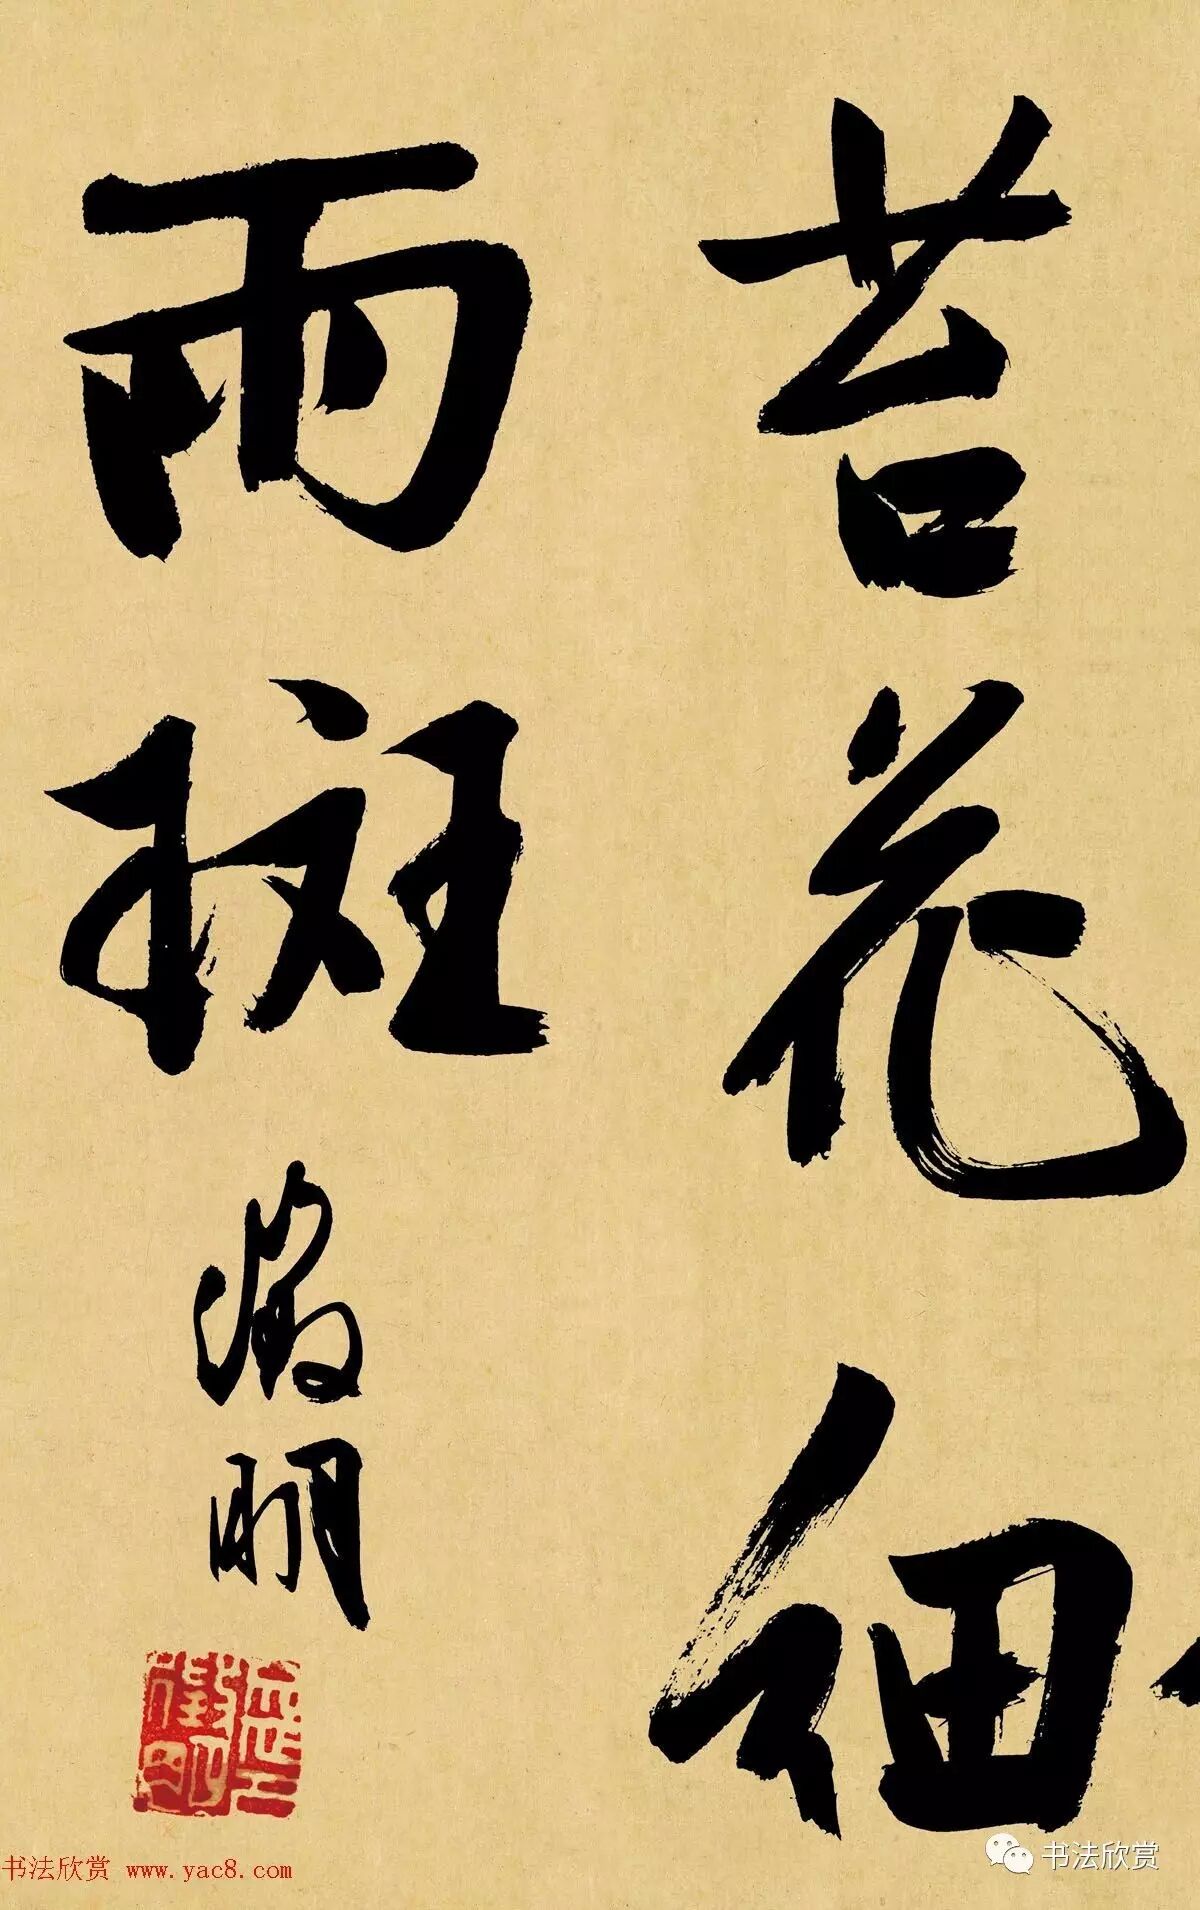 苔花细
雨斑
徵明
书法欣赏 www.yac8.com
书法欣赏